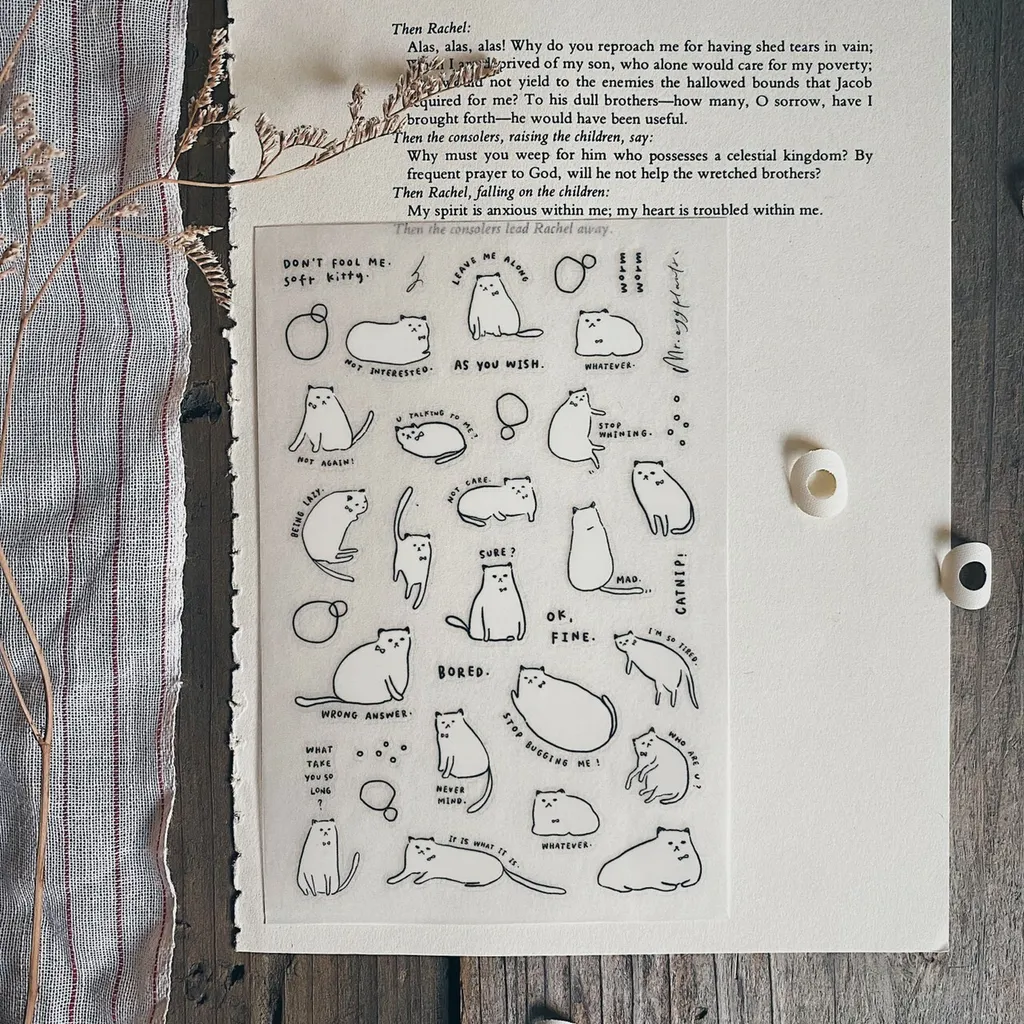 Then Rachel:
Alas, alas, alas! Why do you reproach me for having shed tears in vain;
I am deprived of my son, who alone would care for my poverty;
not yield to the enemies the hallowed bounds that Jacob
acquired for me? To his dull brothers—how many, O sorrow, have I
brought forth—he would have been useful.
Then the consolers, raising the children, say:
Why must you weep for him who possesses a celestial kingdom? By
frequent prayer to God, will he not help the wretched brothers?
Then Rachel, falling on the children:
My spirit is anxious within me; my heart is troubled within me.
Then the consolers lead Rachel away.
DON'T FOOL ME.
soft kitty.
LEAVE ME ALONG
MEOW
MEOW
Mr. eggplant.
NOT INTERESTED.
AS YOU WISH.
WHATEVER.
NOT AGAIN!
U TALKING TO ME?
STOP
WHINING.
BEING LAZY.
NOT CARE.
SURE?
MAD.
CATNIP!
OK,
FINE.
I'M SO TIRED.
WRONG ANSWER.
BORED.
STOP BUGGING ME!
WHAT
TAKE
YOU SO
LONG
?
NEVER
MIND.
WHO ARE U?
WHATEVER.
IT IS WHAT IT IS.